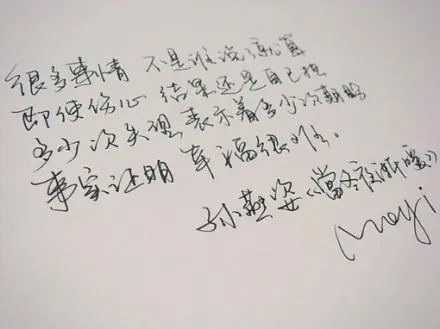 很多事情 不是谁说了就算
即使伤心 结果还是自己担
多少次失望表示着多少次期盼
事实证明 幸福很难。
孙燕姿《當冬夜渐暖》
Moyi